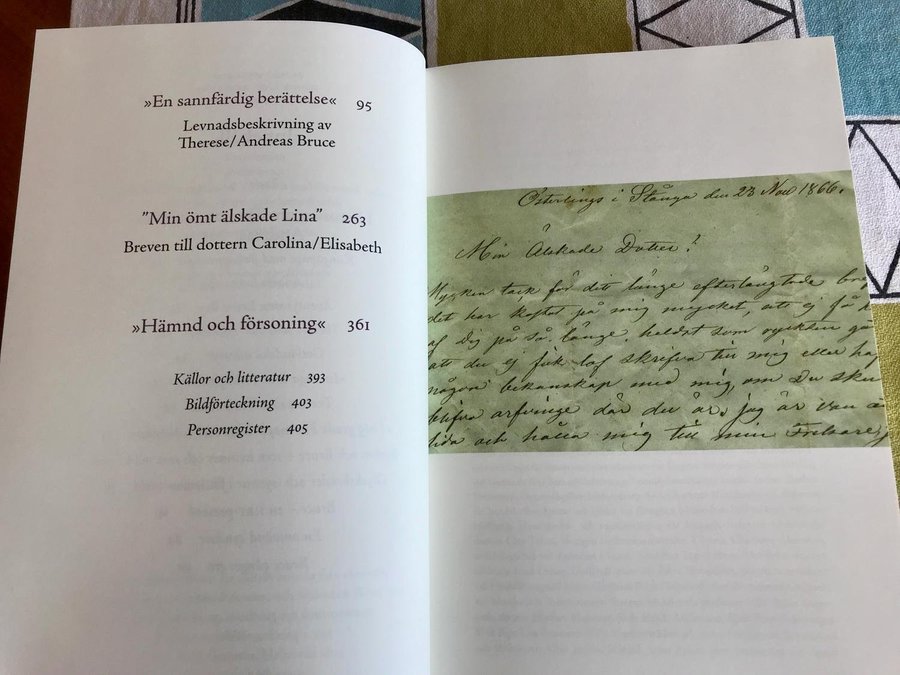 »En sannfärdig berättelse« 95
Levnadsbeskrivning av
Therese/Andreas Bruce
”Min ömt älskade Lina” 263
Breven till dottern Carolina/Elisabeth
»Hämnd och försoning« 361
Källor och litteratur 393
Bildförteckning 403
Personregister 405
Österlings i Stånga den 23 Nov 1866.
Min Älskade Dotter!
Mycken tack för ditt länge efterlängtade
det har kostat på mig mycket, att ej få
af dig på så länge, heldst som
att du ej fick lof skrifva till mig eller
någon bekanskap med mig, om Du
blifva arfvinge där du är, jag är van
lida och hålla mig till min Frelsare